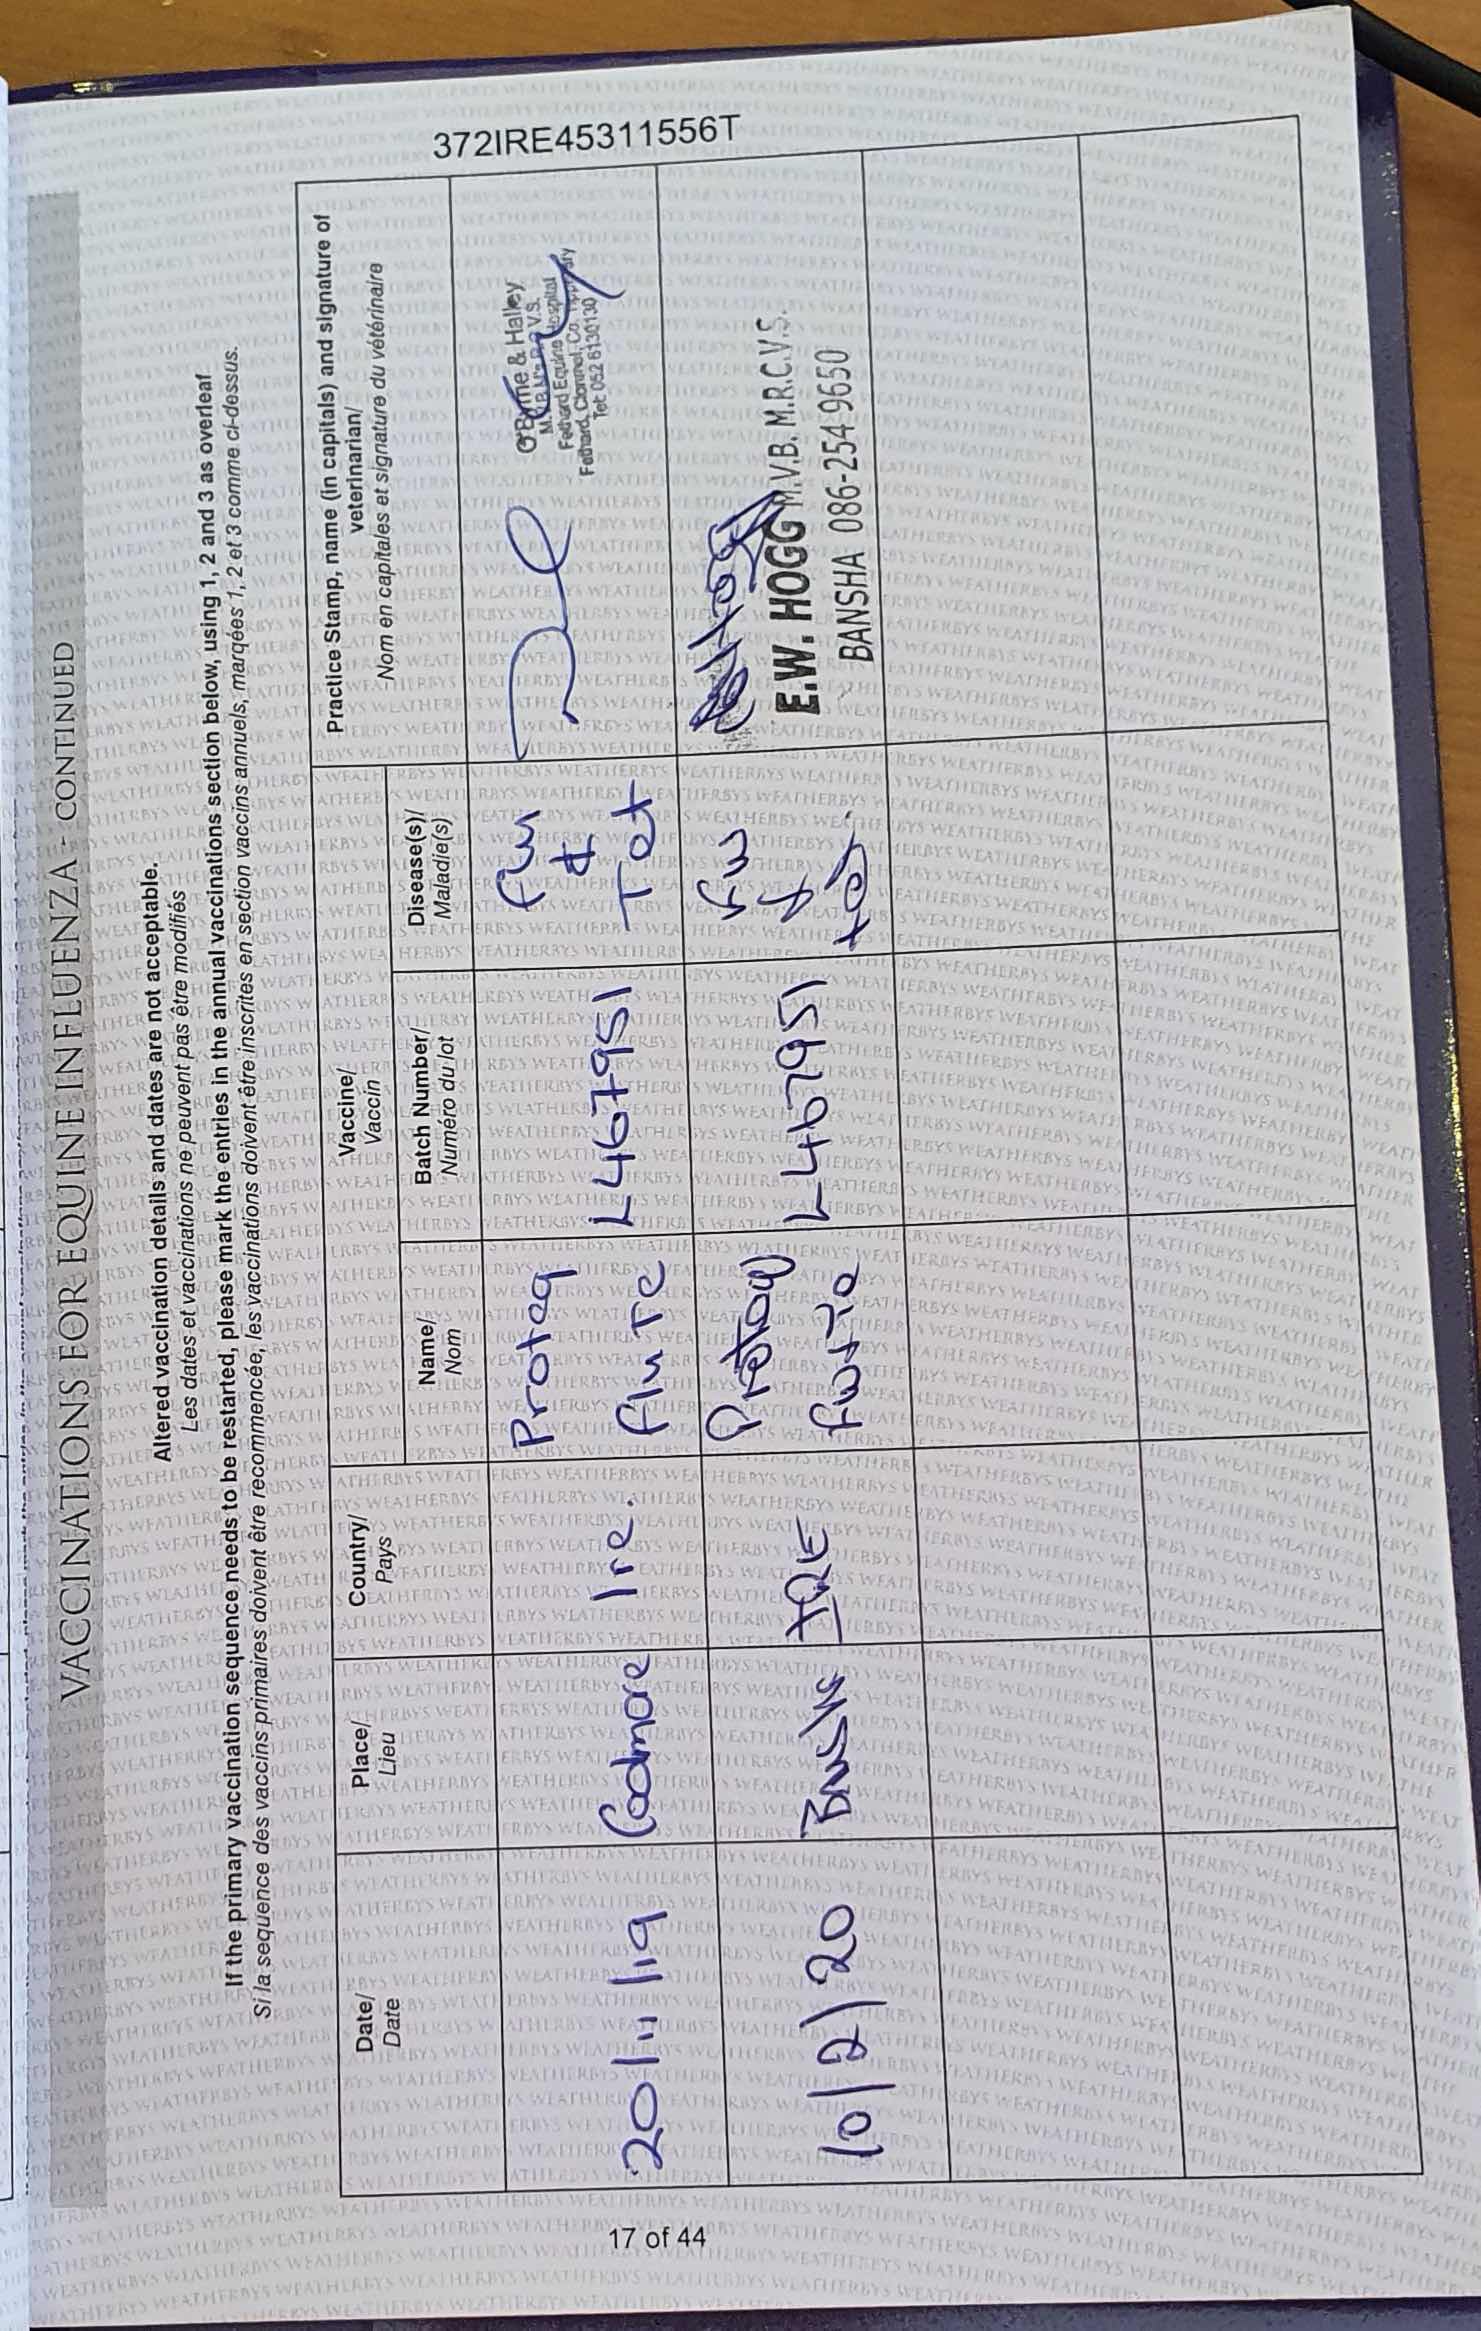 VACCINATIONS FOR EQUINE INFLUENZA - CONTINUED
Altered vaccination details and dates are not acceptable.
Les dates et vaccinations ne peuvent pas être modifiés
If the primary vaccination sequence needs to be restarted, please mark the entries in the annual vaccinations section below, using 1, 2 and 3 as overleaf
Si la sequence des vaccins primaires doivent être recommencée, les vaccinations doivent être inscrites en section vaccins annuels, marqées 1, 2 et 3 comme ci-dessus.
372IRE45311556T
Date/
Date
Place/
Lieu
Country/
Pays
Vaccine/
Vaccin
Name/
Nom
Batch Number/
Numéro du lot
Disease(s)/
Maladie(s)
Practice Stamp, name (in capitals) and signature of
veterinarian/
Nom en capitales et signature du vétérinaire
20/11/19
Coolmore
Ire.
Proteq
flu Te
L467951
flu
&
Tet
O'Byrne & Halley
Fethard Equine Hospital
Fethard, Clonmel, Co. Tipperary
Tel: 052 6130130
10/2/20
IRE
L467951
flu
&
tet.
E.W. HOGG M.V.B. M.R.C.V.S.
BANSHA 086-254 9650
17 of 44